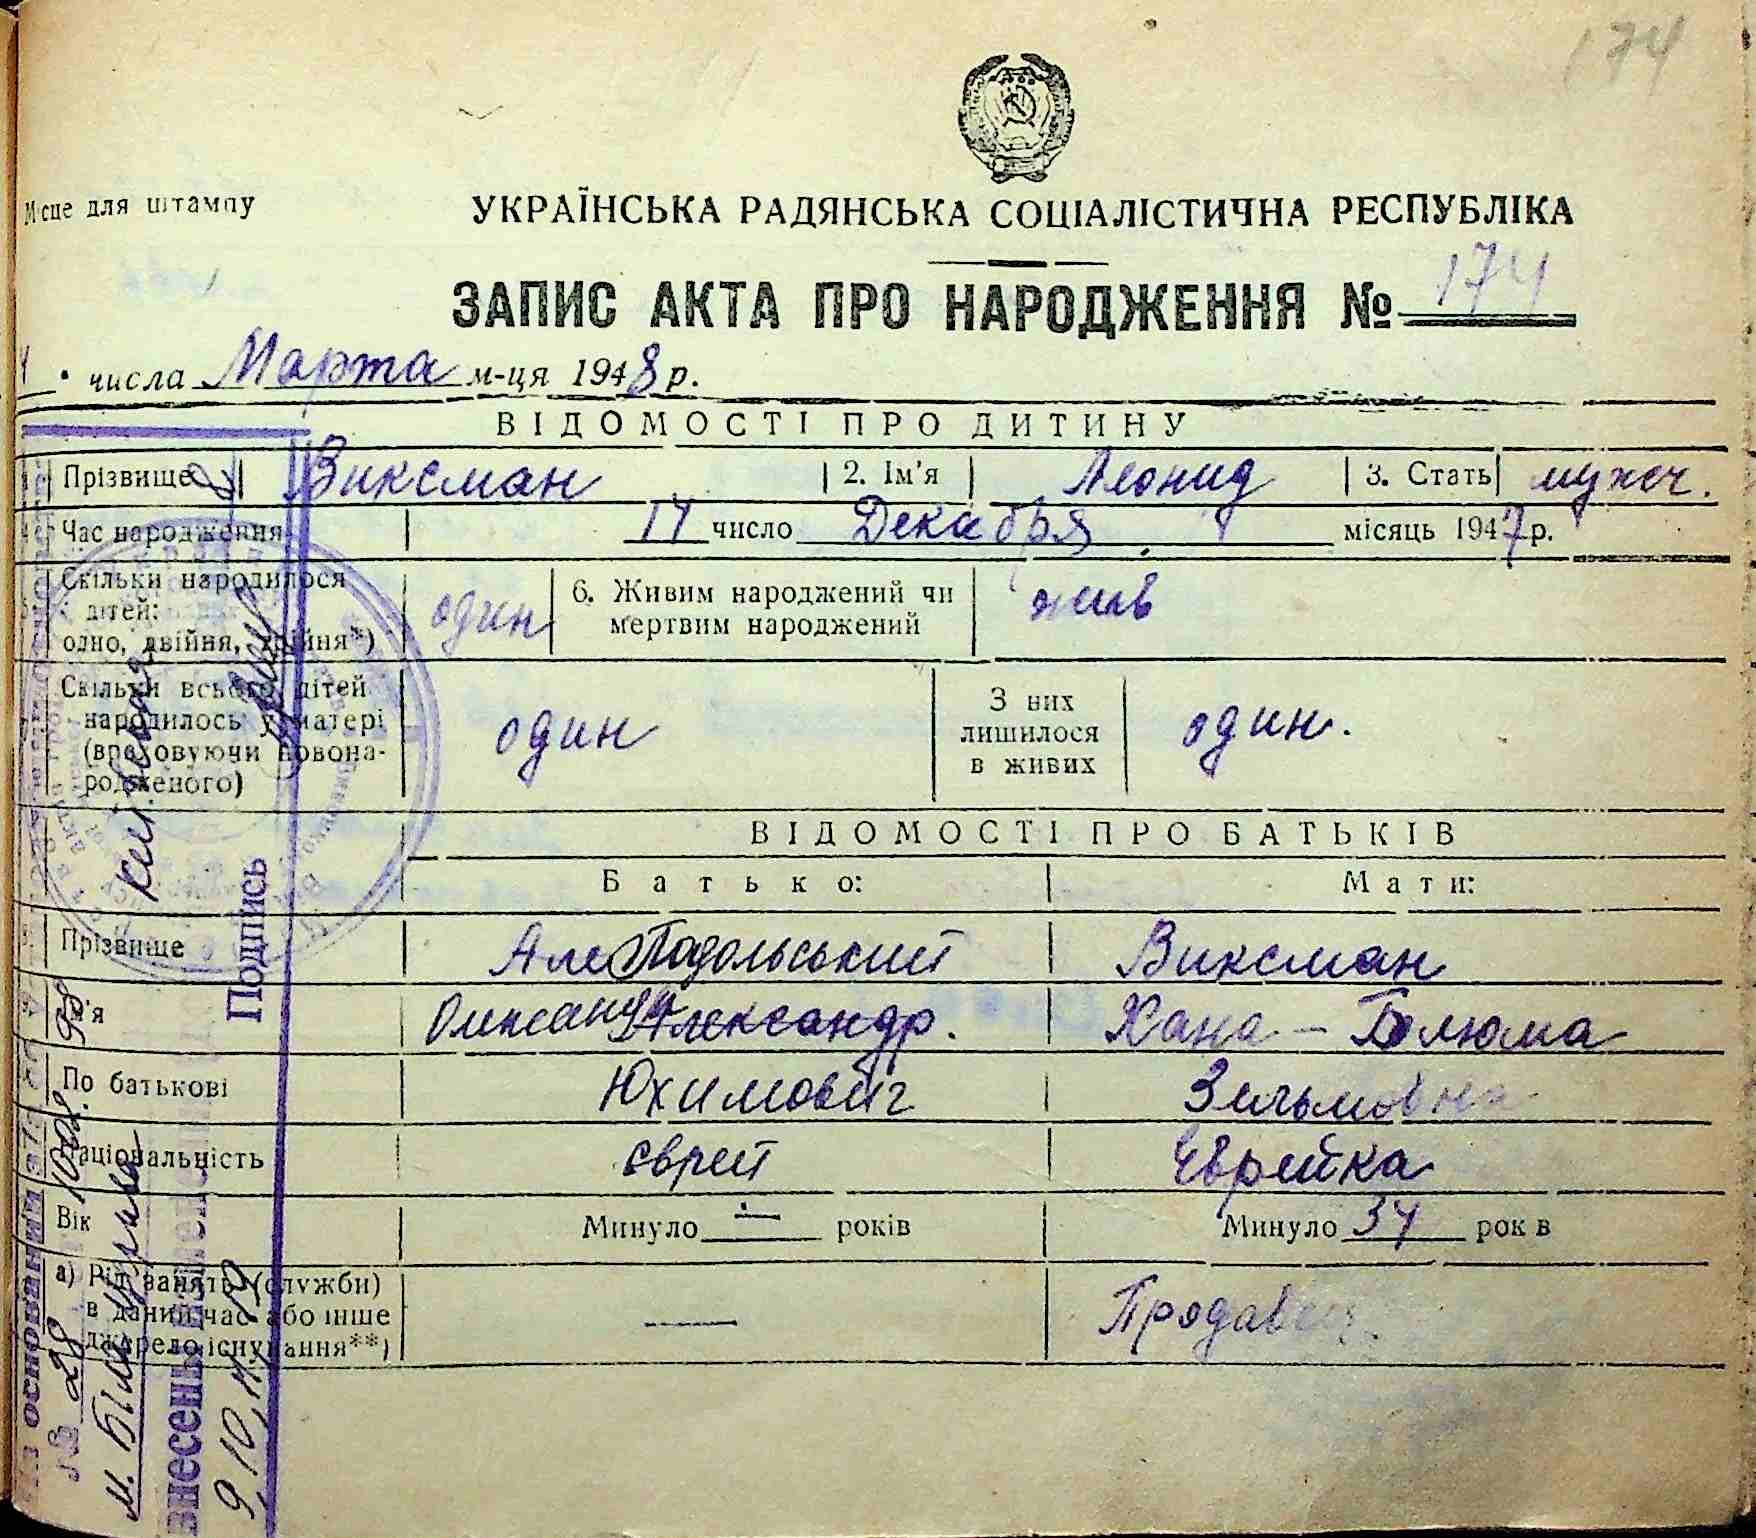 174
Місце для штампу
УКРАЇНСЬКА РАДЯНСЬКА СОЦІАЛІСТИЧНА РЕСПУБЛІКА
ЗАПИС АКТА ПРО НАРОДЖЕННЯ № 174
числа Марта м-ця 1948 р.
ВІДОМОСТІ ПРО ДИТИНУ
Прізвище Виксман 2. Ім'я Леонид 3. Стать мужч.
Час народження 14 число Декабря місяць 1947 р.
Скільки народилося дітей: одно, двійня, трійня*) один 6. Живим народжений чи мертвим народжений жив
Скільки всього дітей народилось у матері (враховуючи новонародженого) один З них лишилося в живих один.
ВІДОМОСТІ ПРО БАТЬКІВ
Батько: Мати:
Прізвище Подольський Виксман
Ім'я Олександр Александр. Хана - Блюма
По батькові Юхимович Зельмовна
Національність єврей Еврейка
Вік Минуло — років Минуло 34 років
а) Рід занять (служби) в даний час або інше джерело існування**) — Продавец
На основании
№ 28
м. Біла Церква
внесены
9.10.
Подпись